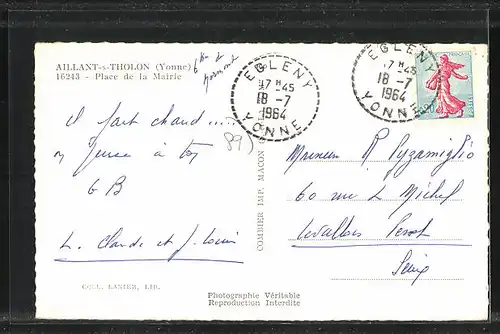 AILLANT-s-THOLON (Yonne)
16243 - Place de la Mairie
EGLENY
17 H 45
18 -7
1964
YONNE
EGLENY
17 H 45
18 -7
1964
YONNE
il fait chaud.....
on pense à toi
G B
L. Claude et J. Louis
89)
COMBIER IMP. MACON
Monsieur R Pyzamiglio
60 rue L Michel
Levallois Perret
Seine
COLL. LANIER, LIB.
Photographie Véritable
Reproduction Interdite